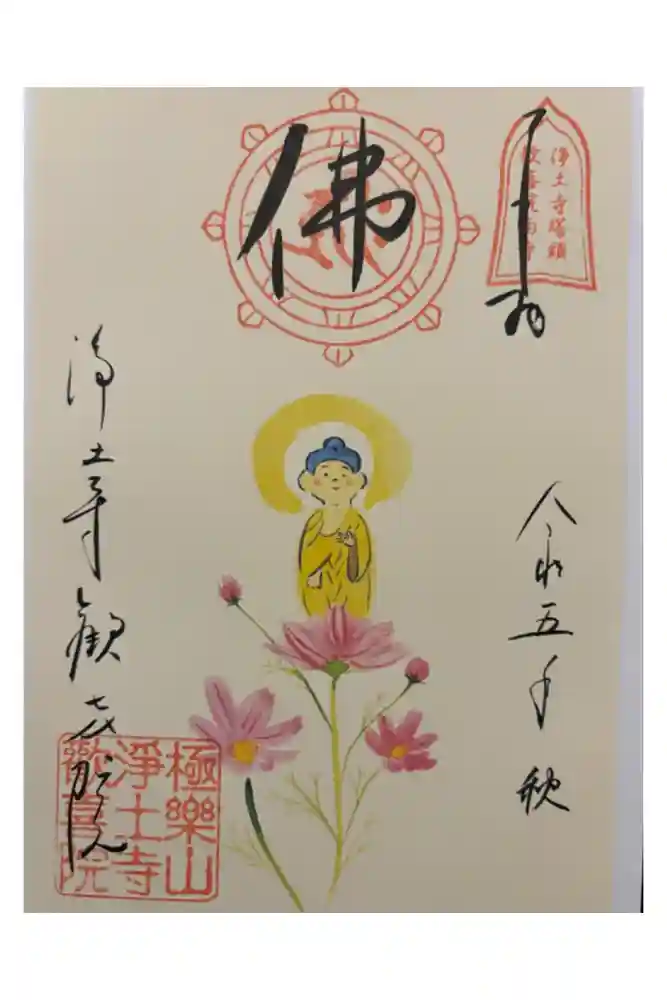 浄土寺塔頭
奉拝
佛
令和五年秋
浄土寺歓喜院
極樂山
淨土寺
歡喜院